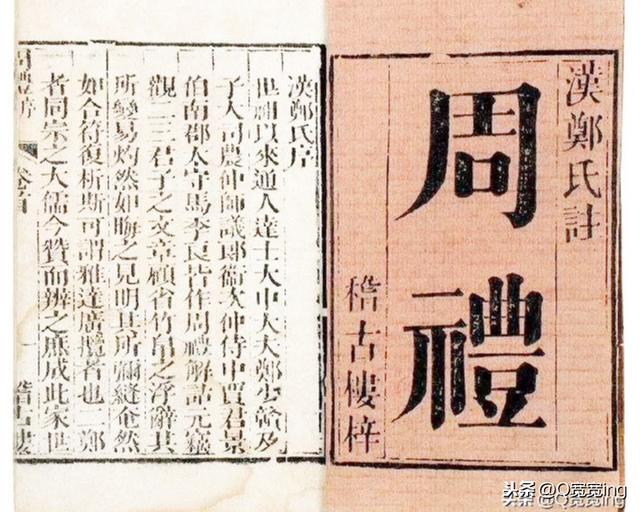 漢鄭氏註
周禮
稽古樓梓
漢鄭氏序
世祖以來通人達士大中大夫鄭少贛及
子大司農仲師議郎衞次仲侍中賈君景
伯南郡太守馬季長皆作周禮解詁元竊
觀二三君子之文章顧省竹帛之浮辭其
所變易灼然如晦之見明其所彌縫奄然
如合符復析斯可謂雅達廣攬者也二鄭
者同宗之大儒今贊而辨之庶成此家世
卷首
稽古樓
头条 @Q宽宽ing